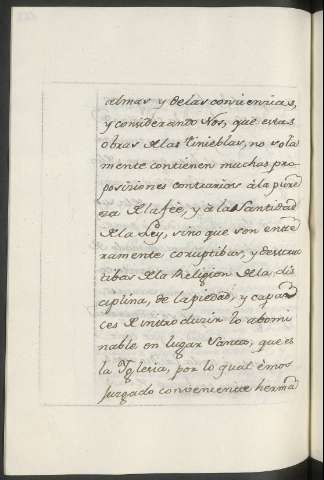 almas y de las conciencias,
y considerando Nos, que estas
obras de las Tinieblas, no sola
mente contienen muchas pro
posiciones contrarias à la pure
za de la feè, y à la Santidad
de la Ley, sino que son entre
ramente corruptibas, y destruc
tibas de la Religion de la dis
ciplina, de la piedad, y capa
ces de introducir lo abomi
nable en lugar Santo, que es
la Yglesia, por lo qual émos
juzgado conveniente herma